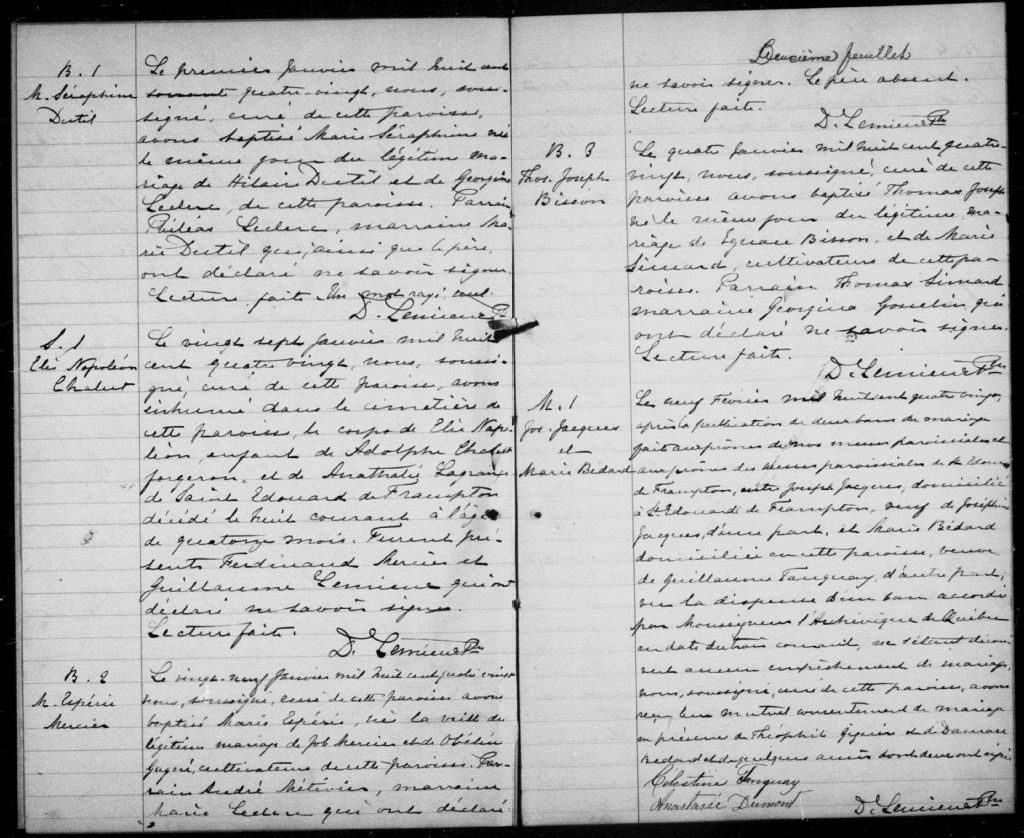 B. 1
M. Séraphine
Dutil
Le premier Janvier mil huit cent
soixante quatre-vingt, nous, sous-
signé, curé de cette paroisse,
avons baptisé Marie Séraphine née
le même jour du légitime ma-
riage de Hilair Dutil et de Georgina
Leclerc, de cette paroisse. Parrain
Philéas Leclerc, marraine Ma-
rie Dutil qui, ainsi que le père,
ont déclaré ne savoir signer.
Lecture faite. Un mot rayé, nul.
D. Lemieux Ptre
S. 1
Elie Napoléon
Chabot
Le vingt sept Janvier mil huit
cent quatre vingt, nous, soussi-
gné, curé de cette paroisse, avons
inhumé dans le cimetière de
cette paroisse, le corps de Elie Napo-
léon, enfant de Adolphe Chabot
forgeron, et de Anathalie Lagrange
de Saint Edouard de Frampton
décédé le huit courant à l'âge
de quatorze mois. Furent pré-
sents Ferdinand Mercier et
Guillaume Lemieux qui ont
déclaré ne savoir signer.
Lecture faite.
D. Lemieux Ptre
B. 2
M. Expérie
Mercier
Le vingt-neuf Janvier mil huit cent quatre vingt
nous, soussigné, curé de cette paroisse avons
baptisé Marie Expérie, née la veille du
légitime mariage de Job Mercier et de Obéline
Gagné, cultivateurs de cette paroisse. Par-
rain André Métivier, marraine
Marie Leclerc qui ont déclaré
Deuxième feuillet
ne savoir signer. Le père absent.
Lecture faite.
D. Lemieux Ptre
B. 3
Thos. Joseph
Bisson
Le quatre Janvier mil huit cent quatre-
vingt, nous, soussigné, curé de cette
paroisse avons baptisé Thomas Joseph
né le même jour du légitime ma-
riage de Ignace Bisson, et de Marie
Simard, cultivateurs de cette pa-
roisse. Parrain Thomas Simard
marraine Georgina Gosselin qui
ont déclaré ne savoir signer.
Lecture faite.
D. Lemieux Ptre
M. 1
Jos. Jacques
et
Marie Bédard
Le neuf Février mil huit cent quatre vingt,
après la publication de deux bans de mariage
fait aux prônes de nos messes paroissiales et
aux prônes des messes paroissiales de St. Edouard
de Frampton, entre Joseph Jacques, domicilié
à St. Edouard de Frampton, veuf de Joséphine
Jacques, d'une part, et Marie Bédard
domiciliée en cette paroisse, veuve
de Guillaume Tanguay, d'autre part,
vu la dispense d'un ban accordée
par Monseigneur l'Archevêque de Québec
en date du trois courant, ne s'étant décou-
vert aucun empêchement de mariage,
nous, soussigné, curé de cette paroisse, avons
reçu leur mutuel consentement de mariage
en présence de Théophile Giguère et de Damase
Bédard et de quelques amis dont deux ont signé
Celestine Tanguay
Anastasie Dumont
D. Lemieux Ptre